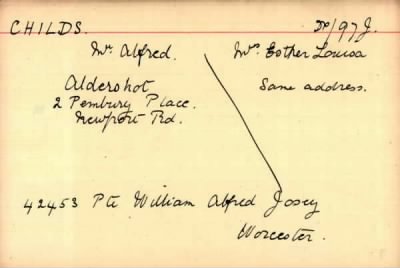 CHILDS. D/197J.
Mr. Alfred. Mrs. Esther Louisa
Aldershot Same address.
2 Pembury Place.
Newport Rd.
42453 Pte William Alfred Josey
Worcester.